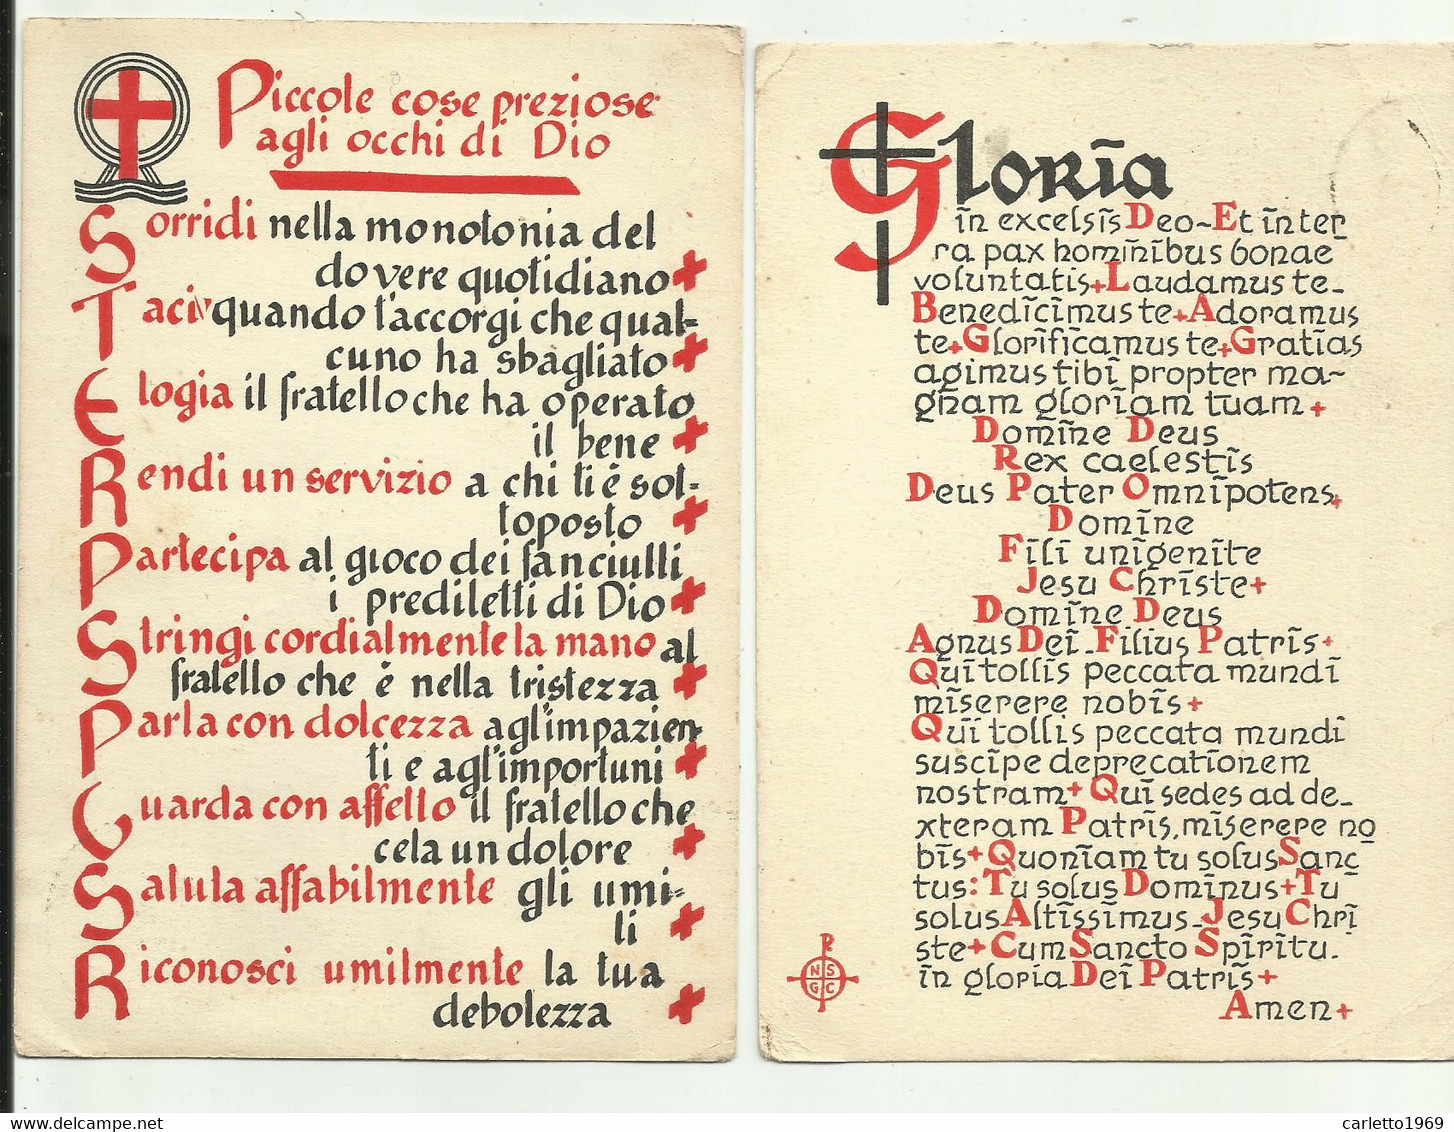 Piccole cose preziose
agli occhi di Dio
Sorridi nella monotonia del
dovere quotidiano +
Taci quando t'accorgi che qual=
cuno ha sbagliato +
Elogia il fratello che ha operato
il bene +
Rendi un servizio a chi ti è sot-
toposto +
Partecipa al gioco dei fanciulli
i prediletti di Dio +
Stringi cordialmente la mano al
fratello che è nella tristezza +
Parla con dolcezza agl'impazien-
ti e agl'importuni +
Guarda con affetto il fratello che
cela un dolore +
Saluta affabilmente gli umi=
li +
Riconosci umilmente la tua
debolezza +
Gloria
in excelsis Deo~Et in ter
ra pax hominibus bonae
voluntatis+Laudamus te_
Benedicimus te+Adoramus
te+Glorificamus te+Gratias
agimus tibi propter ma~
gnam gloriam tuam+
Domine Deus
Rex caelestis
Deus Pater Omnipotens+
Domine
Fili unigenite
Jesu Christe+
Domine Deus
Agnus Dei_Filius Patris+
Qui tollis peccata mundi
miserere nobis+
Qui tollis peccata mundi
suscipe deprecationem
nostram+Qui sedes ad de_
xteram Patris, miserere no
bis+Quoniam tu solus Sanc
tus: Tu solus Dominus+Tu
solus Altissimus_Jesu Chri
ste+Cum Sancto Spiritu.
in gloria Dei Patris+
Amen+
R
N S
G C
carletto1969